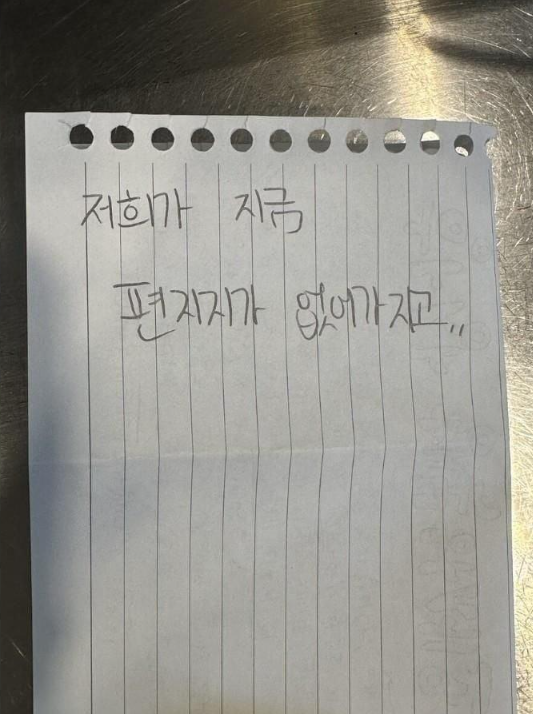 저희가 지금
편지지가 없어가지고..